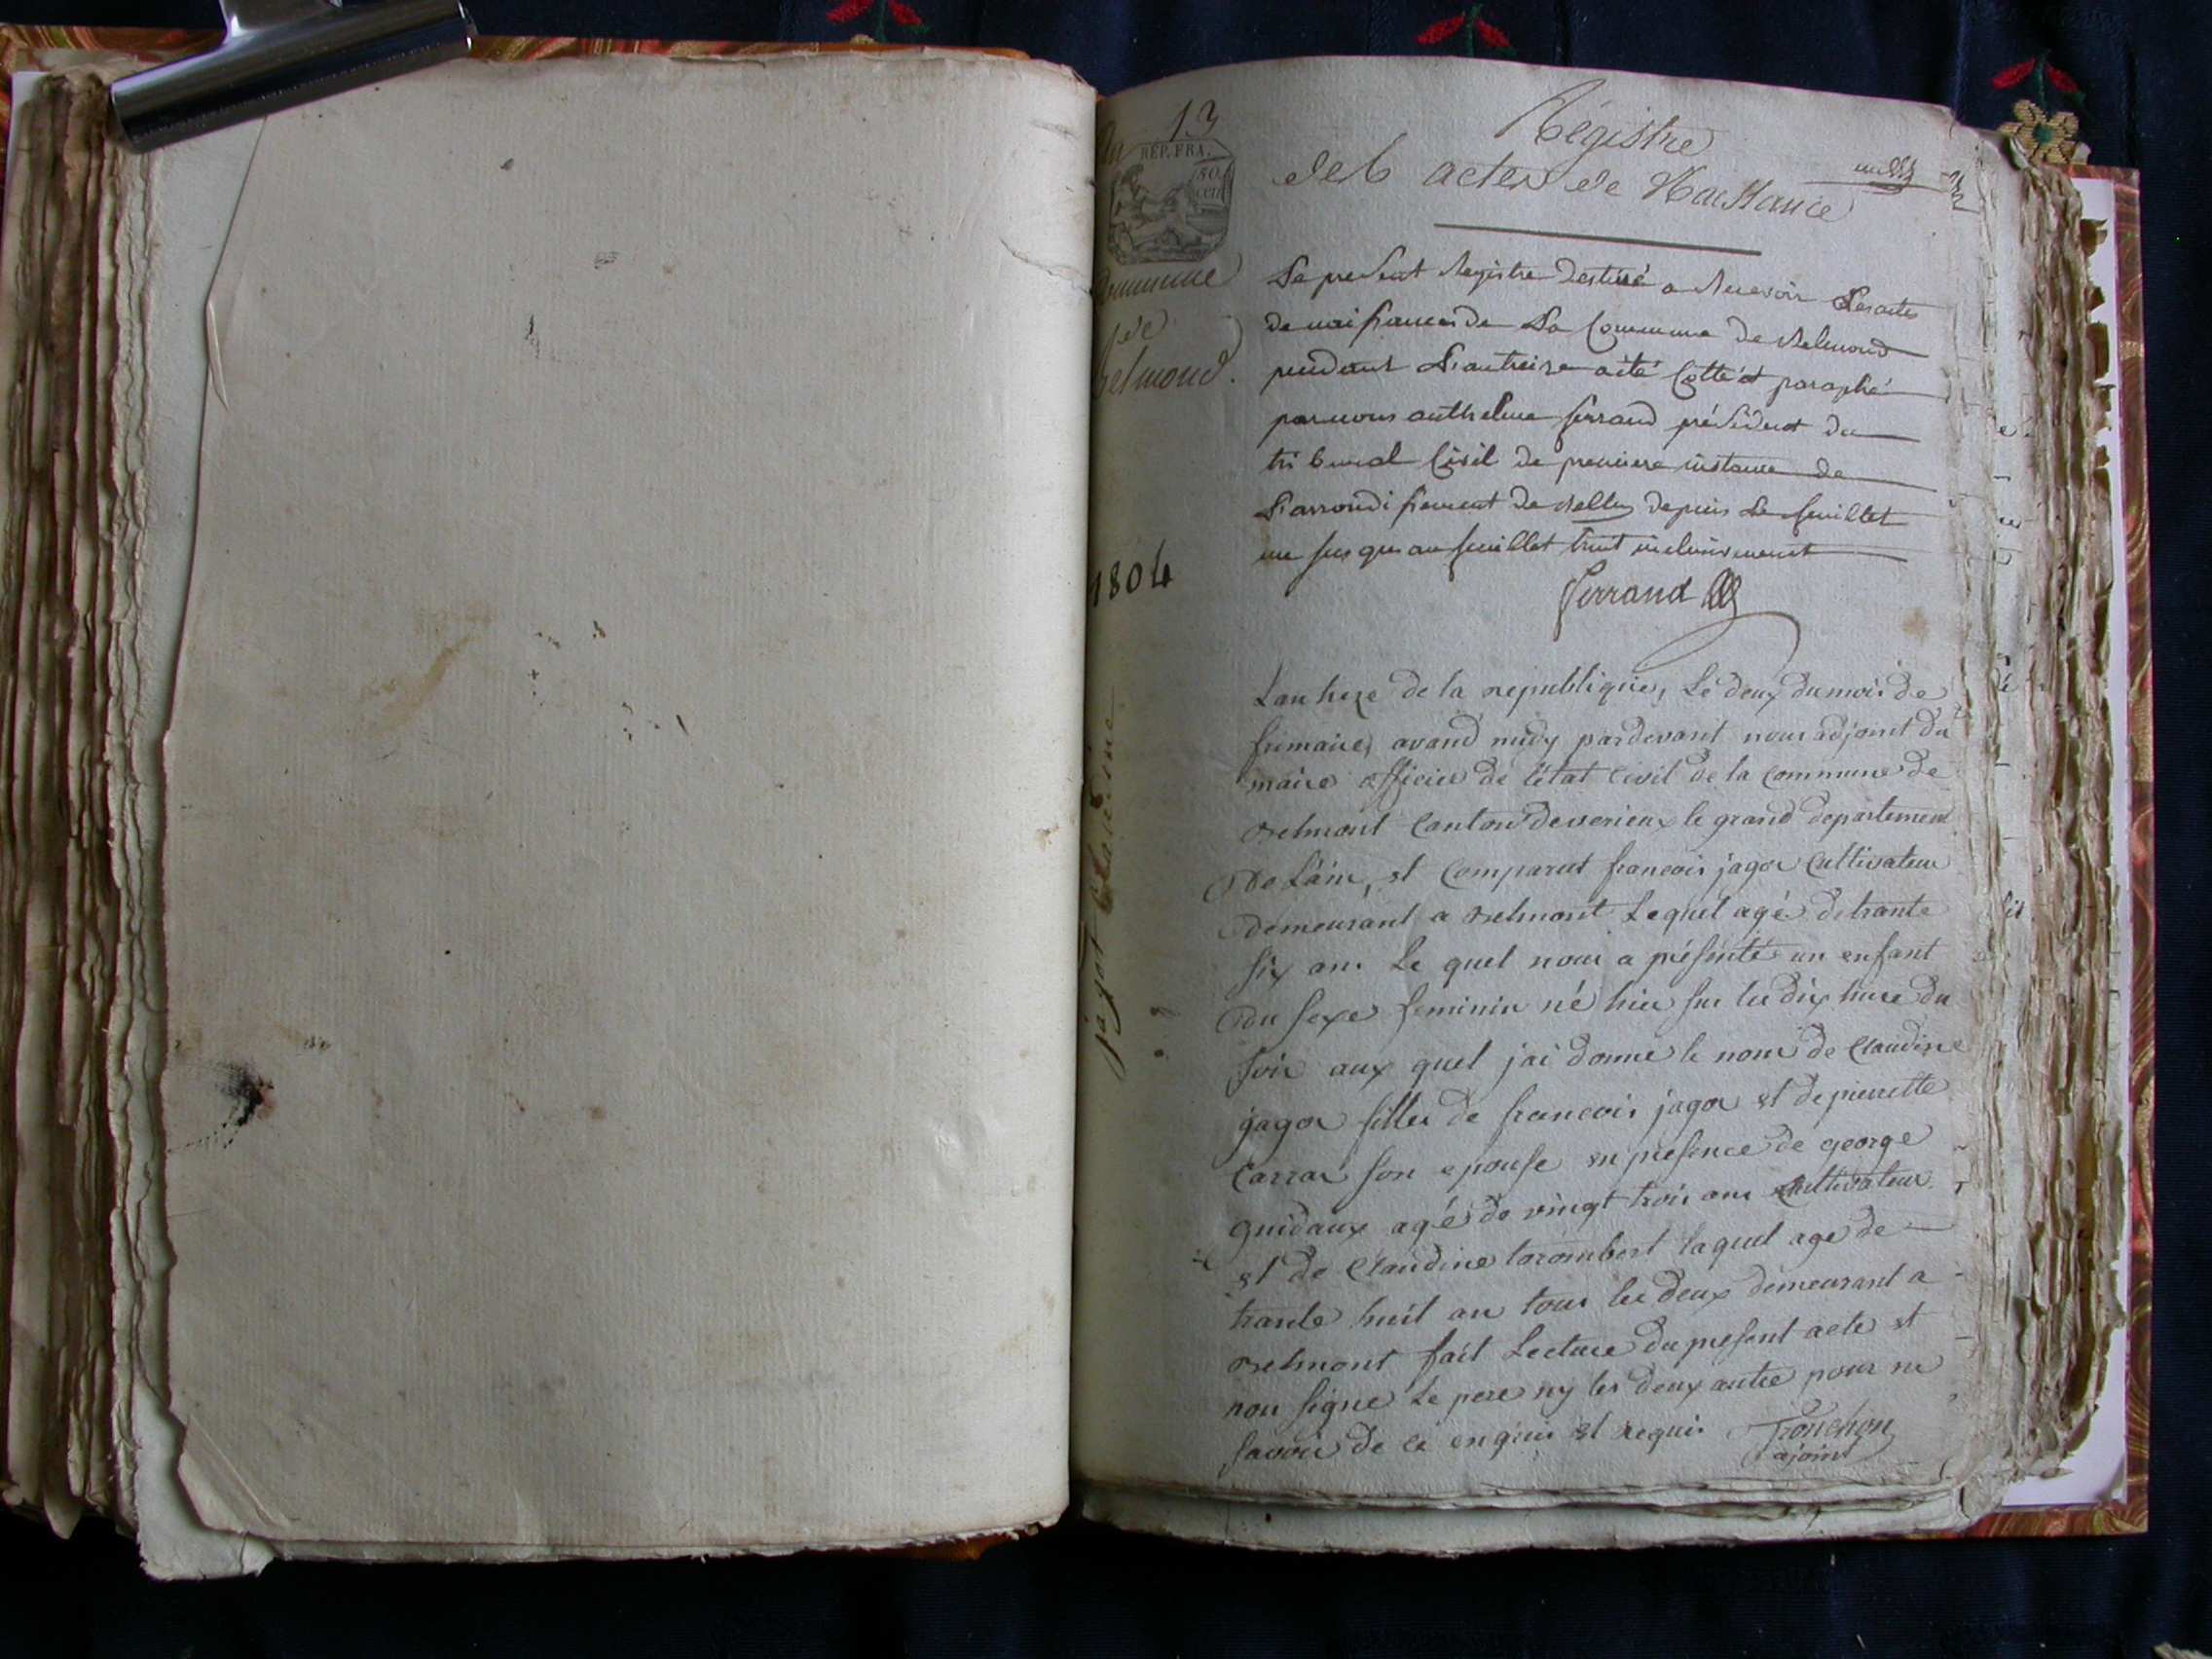 An 13
REP. FRA.
50
cen
Commune
de
belmond.
1804
jagot Claudine
Régistre
des actes de Naissance
un
Le present Registre destiné a Recevoir Les actes
de naissances de La Commune de Belmond
pendant L'an treize a été Cotté et paraphé
par nous anthelme ferrand président du
tribunal Civil de premiere instance de
L'arrondissement de Belley depuis Le feuillet
un jusques au feuillet huit inclusivement
ferrand
Lan treze de la republique, Le deux du mois de
frimaire, avand midy pardevant nous adjoint du
maire officier de l'état Civil de la Commune de
belmont Canton de verieux le grand departement
De Lain, et Comparut francois jagot Cultivateur
demeurant a belmont Lequel agé de trante
six ans Le quel nous a présenté un enfant
du sexe feminin né hier sur les dix heure du
soir aux quel jai donné le nom de Claudine
jagot filles de francois jagot et de pierrette
Carrar son epouse en presence de george
guidaux agé de vingt trois ans Cultivateur
et de Claudine tarombert laquel age de
trante huit an tous les deux demeurant a
belmont fait Lecture du present acte et
non signe Le pere ny les deux autre pour ne
savoir de ce enquis et requis Tronchon
ajoint